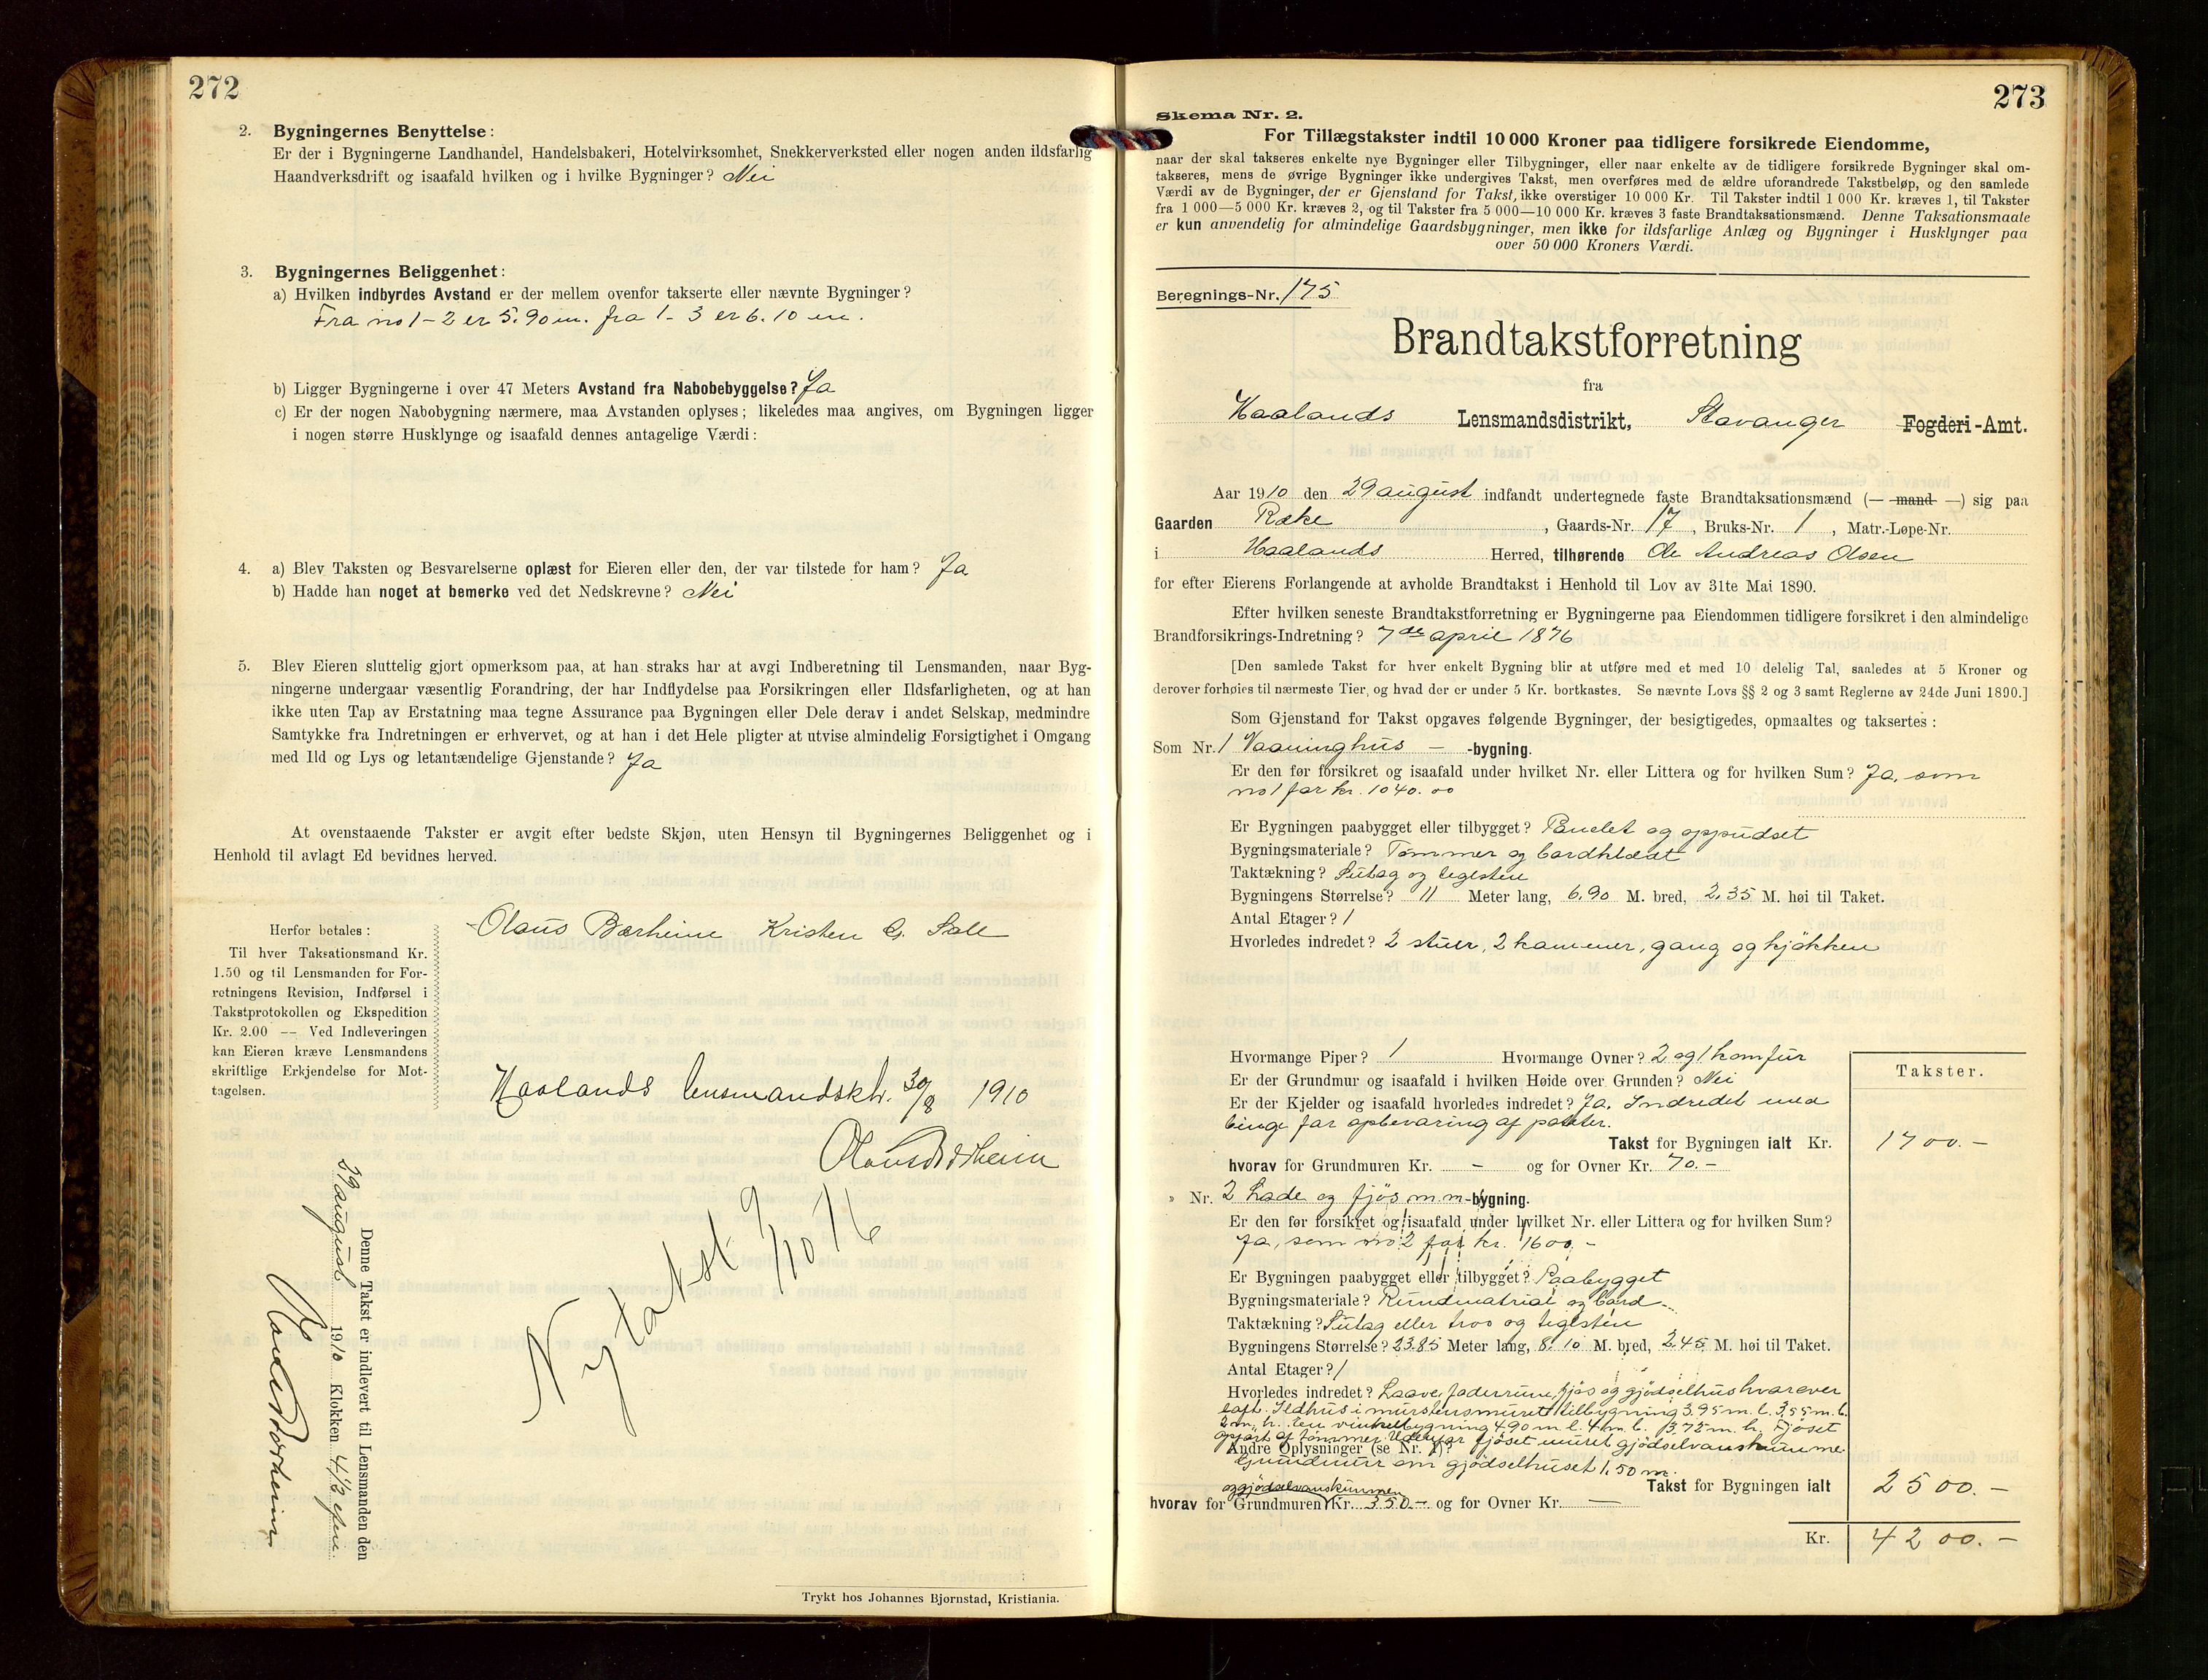 272
2. Bygningernes Benyttelse:
Er der i Bygningerne Landhandel, Handelsbakeri, Hotelvirksomhet, Snekkerverksted eller nogen anden ildsfarlig
Haandverksdrift og isaafald hvilken og i hvilke Bygninger? Nei
3. Bygningernes Beliggenhet:
a) Hvilken indbyrdes Avstand er der mellem ovenfor takserte eller nævnte Bygninger?
Fra no 1 - 2 er 5.90 m. fra 1 - 3 er 6.10 m.
b) Ligger Bygningerne i over 47 Meters Avstand fra Nabobebyggelse? Ja
c) Er der nogen Nabobygning nærmere, maa Avstanden oplyses; likeledes maa angives, om Bygningen ligger
i nogen større Husklynge og isaafald dennes antagelige Værdi:
4. a) Blev Taksten og Besvarelserne oplæst for Eieren eller den, der var tilstede for ham? Ja
b) Hadde han noget at bemerke ved det Nedskrevne? Nei
5. Blev Eieren sluttelig gjort opmerksom paa, at han straks har at avgi Indberetning til Lensmanden, naar Byg-
ningerne undergaar væsentlig Forandring, der har Indflydelse paa Forsikringen eller Ildsfarligheten, og at han
ikke uten Tap av Erstatning maa tegne Assurance paa Bygningen eller Dele derav i andet Selskap, medmindre
Samtykke fra Indretningen er erhvervet, og at han i det Hele pligter at utvise almindelig Forsigtighet i Omgang
med Ild og Lys og letantændelige Gjenstande? Ja
At ovenstaaende Takster er avgit efter bedste Skjøn, uten Hensyn til Bygningernes Beliggenhet og i
Henhold til avlagt Ed bevidnes herved.
Olaus Bærheim Kristen G.
Herfor betales:
Til hver Taksationsmand Kr.
1.50 og til Lensmanden for For-
retningens Revision, Indførsel i
Takstprotokollen og Ekspedition
Kr. 2.00 — Ved Indleveringen
kan Eieren kræve Lensmandens
skriftlige Erkjendelse for Mot-
tagelsen.
Haalands lensmandsktr. 30/8 1910
Denne Takst er indlevert til Lensmanden den
29 august 1910 Klokken 4 1/2 efm.
Ny takst 9/10 16
Trykt hos Johannes Bjørnstad, Kristiania.
273
Skema Nr. 2.
For Tillægstakster indtil 10 000 Kroner paa tidligere forsikrede Eiendomme,
naar der skal takseres enkelte nye Bygninger eller Tilbygninger, eller naar enkelte av de tidligere forsikrede Bygninger skal om-
takseres, mens de øvrige Bygninger ikke undergives Takst, men overføres med de ældre uforandrede Takstbeløp, og den samlede
Værdi av de Bygninger, der er Gjenstand for Takst, ikke overstiger 10 000 Kr. Til Takster indtil 1 000 Kr. kræves 1, til Takster
fra 1 000—5 000 Kr. kræves 2, og til Takster fra 5 000—10 000 Kr. kræves 3 faste Brandtaksationsmænd. Denne Taksationsmaate
er kun anvendelig for almindelige Gaardsbygninger, men ikke for ildsfarlige Anlæg og Bygninger i Husklynger paa
over 50 000 Kroners Værdi.
Beregnings-Nr. 175
Brandtakstforretning
fra
Haalands Lensmandsdistrikt, Stavanger Fogderi-Amt.
Aar 1910 den 29 august indfandt undertegnede faste Brandtaksationsmænd (— mand —) sig paa
Gaarden Ræke, Gaards-Nr. 17, Bruks-Nr. 1, Matr.-Løpe-Nr.
i Haalands Herred, tilhørende Ole Andreas Olsen
for efter Eierens Forlangende at avholde Brandtakst i Henhold til Lov av 31te Mai 1890.
Efter hvilken seneste Brandtakstforretning er Bygningerne paa Eiendommen tidligere forsikret i den almindelige
Brandforsikrings-Indretning? 7de april 1876
[Den samlede Takst for hver enkelt Bygning blir at utføre med et med 10 delelig Tal, saaledes at 5 Kroner og
derover forhøies til nærmeste Tier, og hvad der er under 5 Kr. bortkastes. Se nævnte Lovs §§ 2 og 3 samt Reglerne av 24de Juni 1890.]
Som Gjenstand for Takst opgaves følgende Bygninger, der besigtigedes, opmaaltes og taksertes:
Som Nr. 1 Vaaninghus -bygning.
Er den før forsikret og isaafald under hvilket Nr. eller Littera og for hvilken Sum? Ja, som
no 1 for kr. 1040.00
Er Bygningen paabygget eller tilbygget? Panelet og oppudset
Bygningsmateriale? Tømmer og bordklædt
Taktækning? Sutag og teglsten
Bygningens Størrelse? 11 Meter lang, 6.90 M. bred, 2.35 M. høi til Taket.
Antal Etager? 1
Hvorledes indredet? 2 stuer, 2 kammer, gang og kjøkken
Hvormange Piper? 1 Hvormange Ovner? 2 og 1 komfur
Er der Grundmur og isaafald i hvilken Høide over Grunden? Nei
Er der Kjelder og isaafald hvorledes indredet? Ja. Indredet med
binge for opbevaring af poteter.
Takster.
Takst for Bygningen ialt Kr. 1700.-
hvorav for Grundmuren Kr. - og for Ovner Kr. 70.-
» Nr. 2 Lade og fjøs m.m -bygning.
Er den før forsikret og isaafald under hvilket Nr. eller Littera og for hvilken Sum?
Ja, som no 2 for kr. 1600.-
Er Bygningen paabygget eller tilbygget? Paabygget
Bygningsmateriale? Rundmatrial og bord
Taktækning? Sutag eller troo og teglsten
Bygningens Størrelse? 23.85 Meter lang, 8.10 M. bred, 2.45 M. høi til Taket.
Antal Etager? 1
Hvorledes indredet? Laave, foderrum, fjøs og gjødselhus hvorover
loft. Ildhus i murstensmuret tilbygning 3.95 m. l. 3.55 m. b.
2 m. h. En vinkelbygning 4.90 m l. 4 m b. 3.75 m. h. Fjøset
opført af tømmer. Udenfor fjøset muret gjødselvandskumme
Andre Oplysninger (se Nr. 1)?
Grundmur om gjødselhuset 1.50 m.
Takst for Bygningen ialt 2500.-
og gjødselvandskummen
hvorav for Grundmuren Kr. 350.- og for Ovner Kr. —
Kr. 4200.-